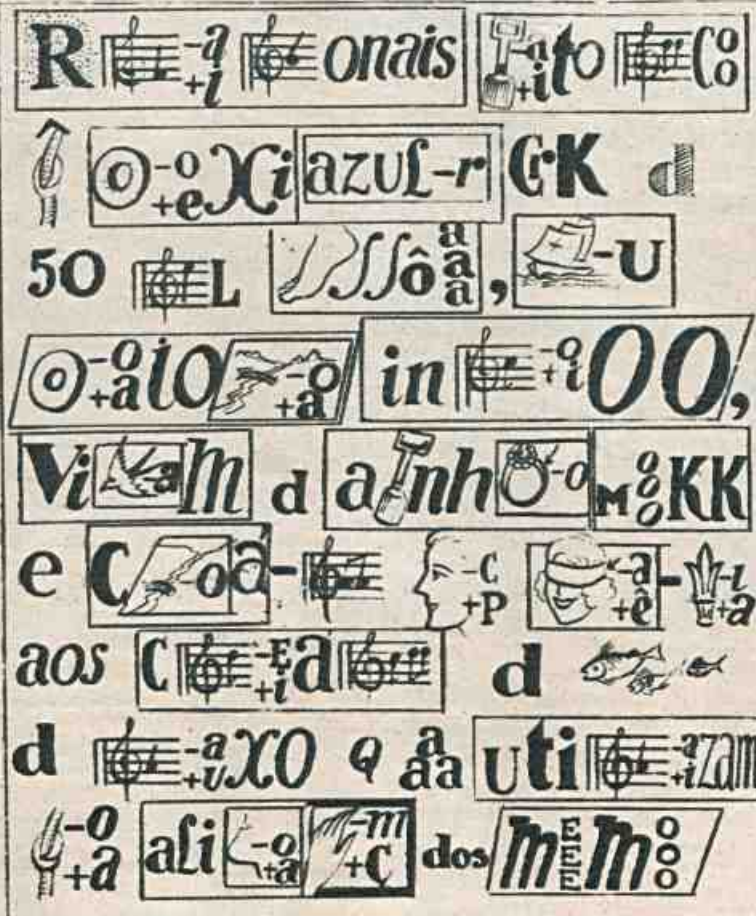 R -a +i onais -a +i to Co o
-o +e Xi azul-r CrK d
50 L ssô a a a , -U
-o +a to -o +a in -o +i OO!,
Vi -a m d a nh -o M o o o KK
e C -o a - -C +P -a +ê - -i +a
aos C -E +i a d
d -a +u XO Q a a a Uti -a +i zam
-o +a ali -o +a -m +C dos m E E E m o o o